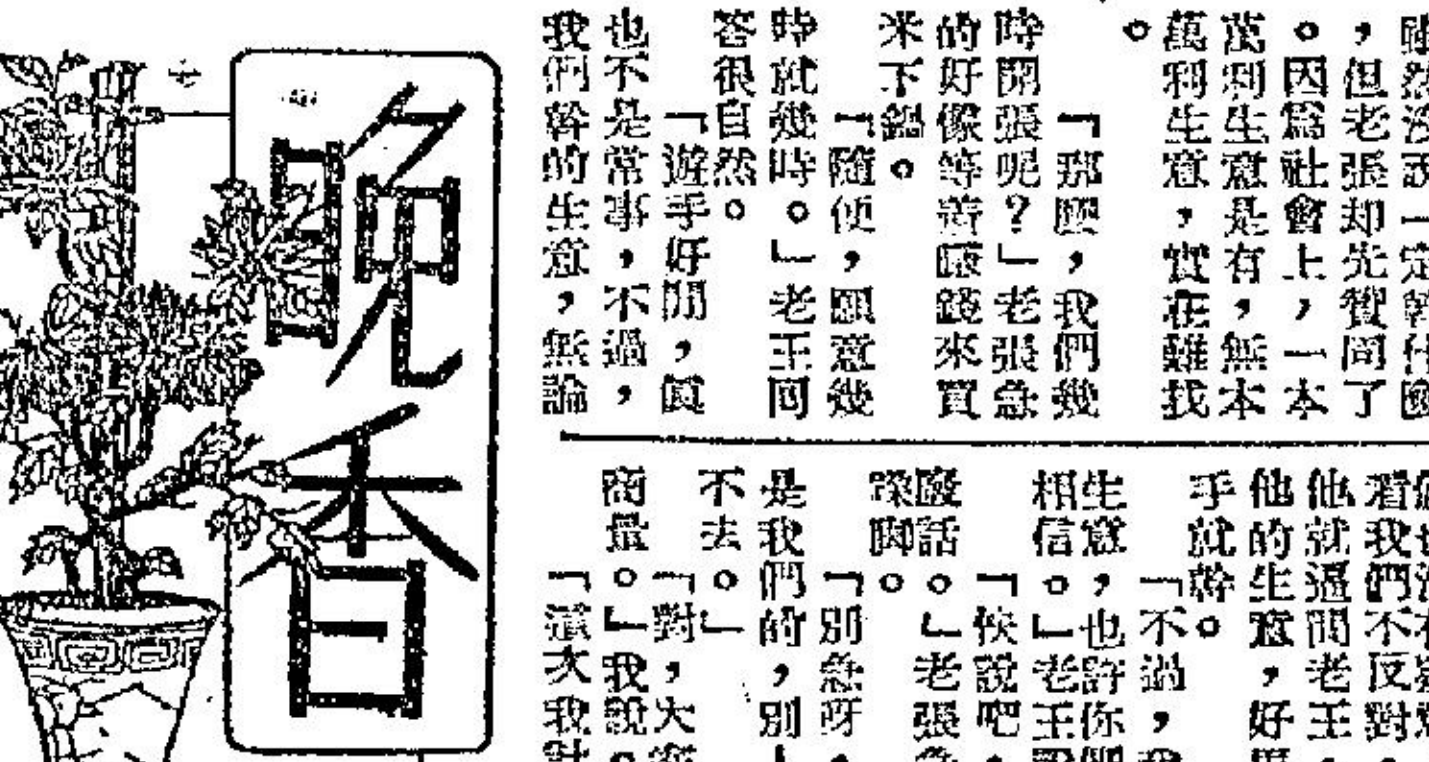 晚香
雖然沒說一定幹什麼
，但老張却先贊同了
。因爲社會上，一本
萬利生意是有，無本
萬利生意，實在難找
。
「那麼，我們幾
時開張呢？」老張急
的好像等着賺錢來買
米下鍋。
「隨便，願意幾
時就幾時。」老王回
答很自然。
「遊手好閒，眞
也不是常事，不過，
我們幹的生意，無論
着我們不反對
他就逼問老王
他的生意，好
手就幹。
「不過，我
生意，也許你們
相信。」老王
「快說吧，
廢話。」老張急
跺脚。
「別急呀，
是我們的，別
不去。」
「對，大家
商量。」我說。